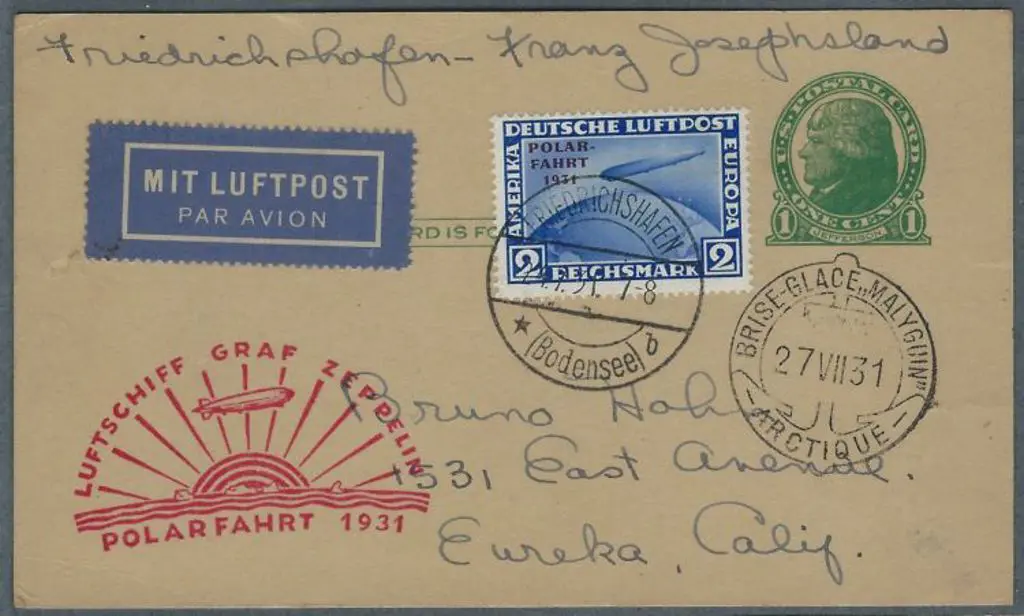 Friedrichshafen – Franz Josephsland
MIT LUFTPOST
PAR AVION
RD IS FO
DEUTSCHE LUFTPOST
AMERIKA
EUROPA
POLAR-
FAHRT
1931
2 REICHSMARK 2
FRIEDRICHSHAFEN
31. 7-8
(Bodensee) b
U.S. POSTAL CARD
1 ONE CENT 1
JEFFERSON
BRISE-GLACE „MALYGUIN"
27 VII 31
ARCTIQUE
LUFTSCHIFF GRAF ZEPPELIN
POLARFAHRT 1931
Bruno Hahn
1531 East Avenue.
Eureka, Calif.